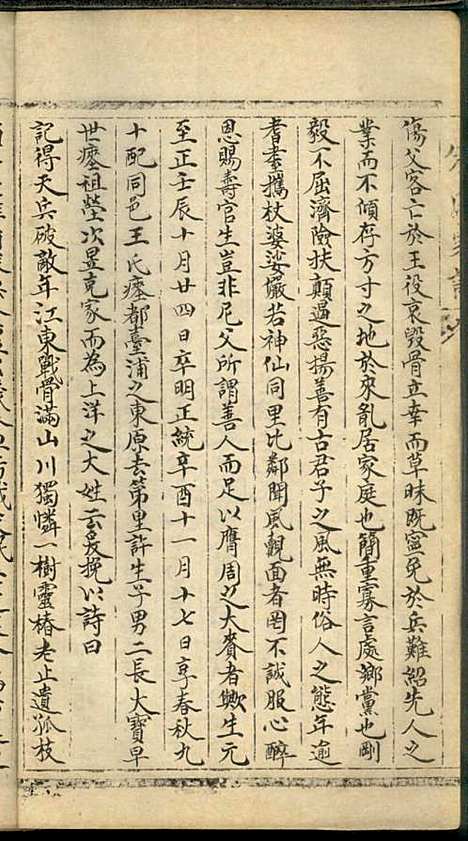 傷父客亡於王役哀毀骨立幸而草昧既寧免於兵難紹先人之
業而不傾存方寸之地於來亂居家庭也簡重寡言處鄉黨也剛
毅不屈濟險扶顛遏惡揚善有古君子之風無時俗人之態年逾
耆耋攜杖婆娑儼若神仙同里比鄰聞風覿面者罔不誠服心醉
恩賜壽官生豈非尼父所謂善人而足以膺周之大賚者歟生元
至正壬辰十月廿四日卒明正統辛酉十一月十七日享春秋九
十配同邑王氏瘞都臺浦之東原去第里許生子男二長大寶早
世瘞祖塋次昱克家而為上洋之大姓云爰挽以詩曰
記得天兵破敵年江東戰骨滿山川獨憐一樹靈椿老止遺孤枝